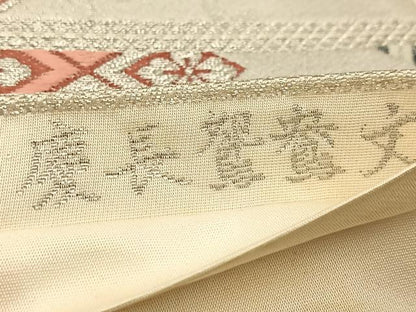 慶長鴛鴦文